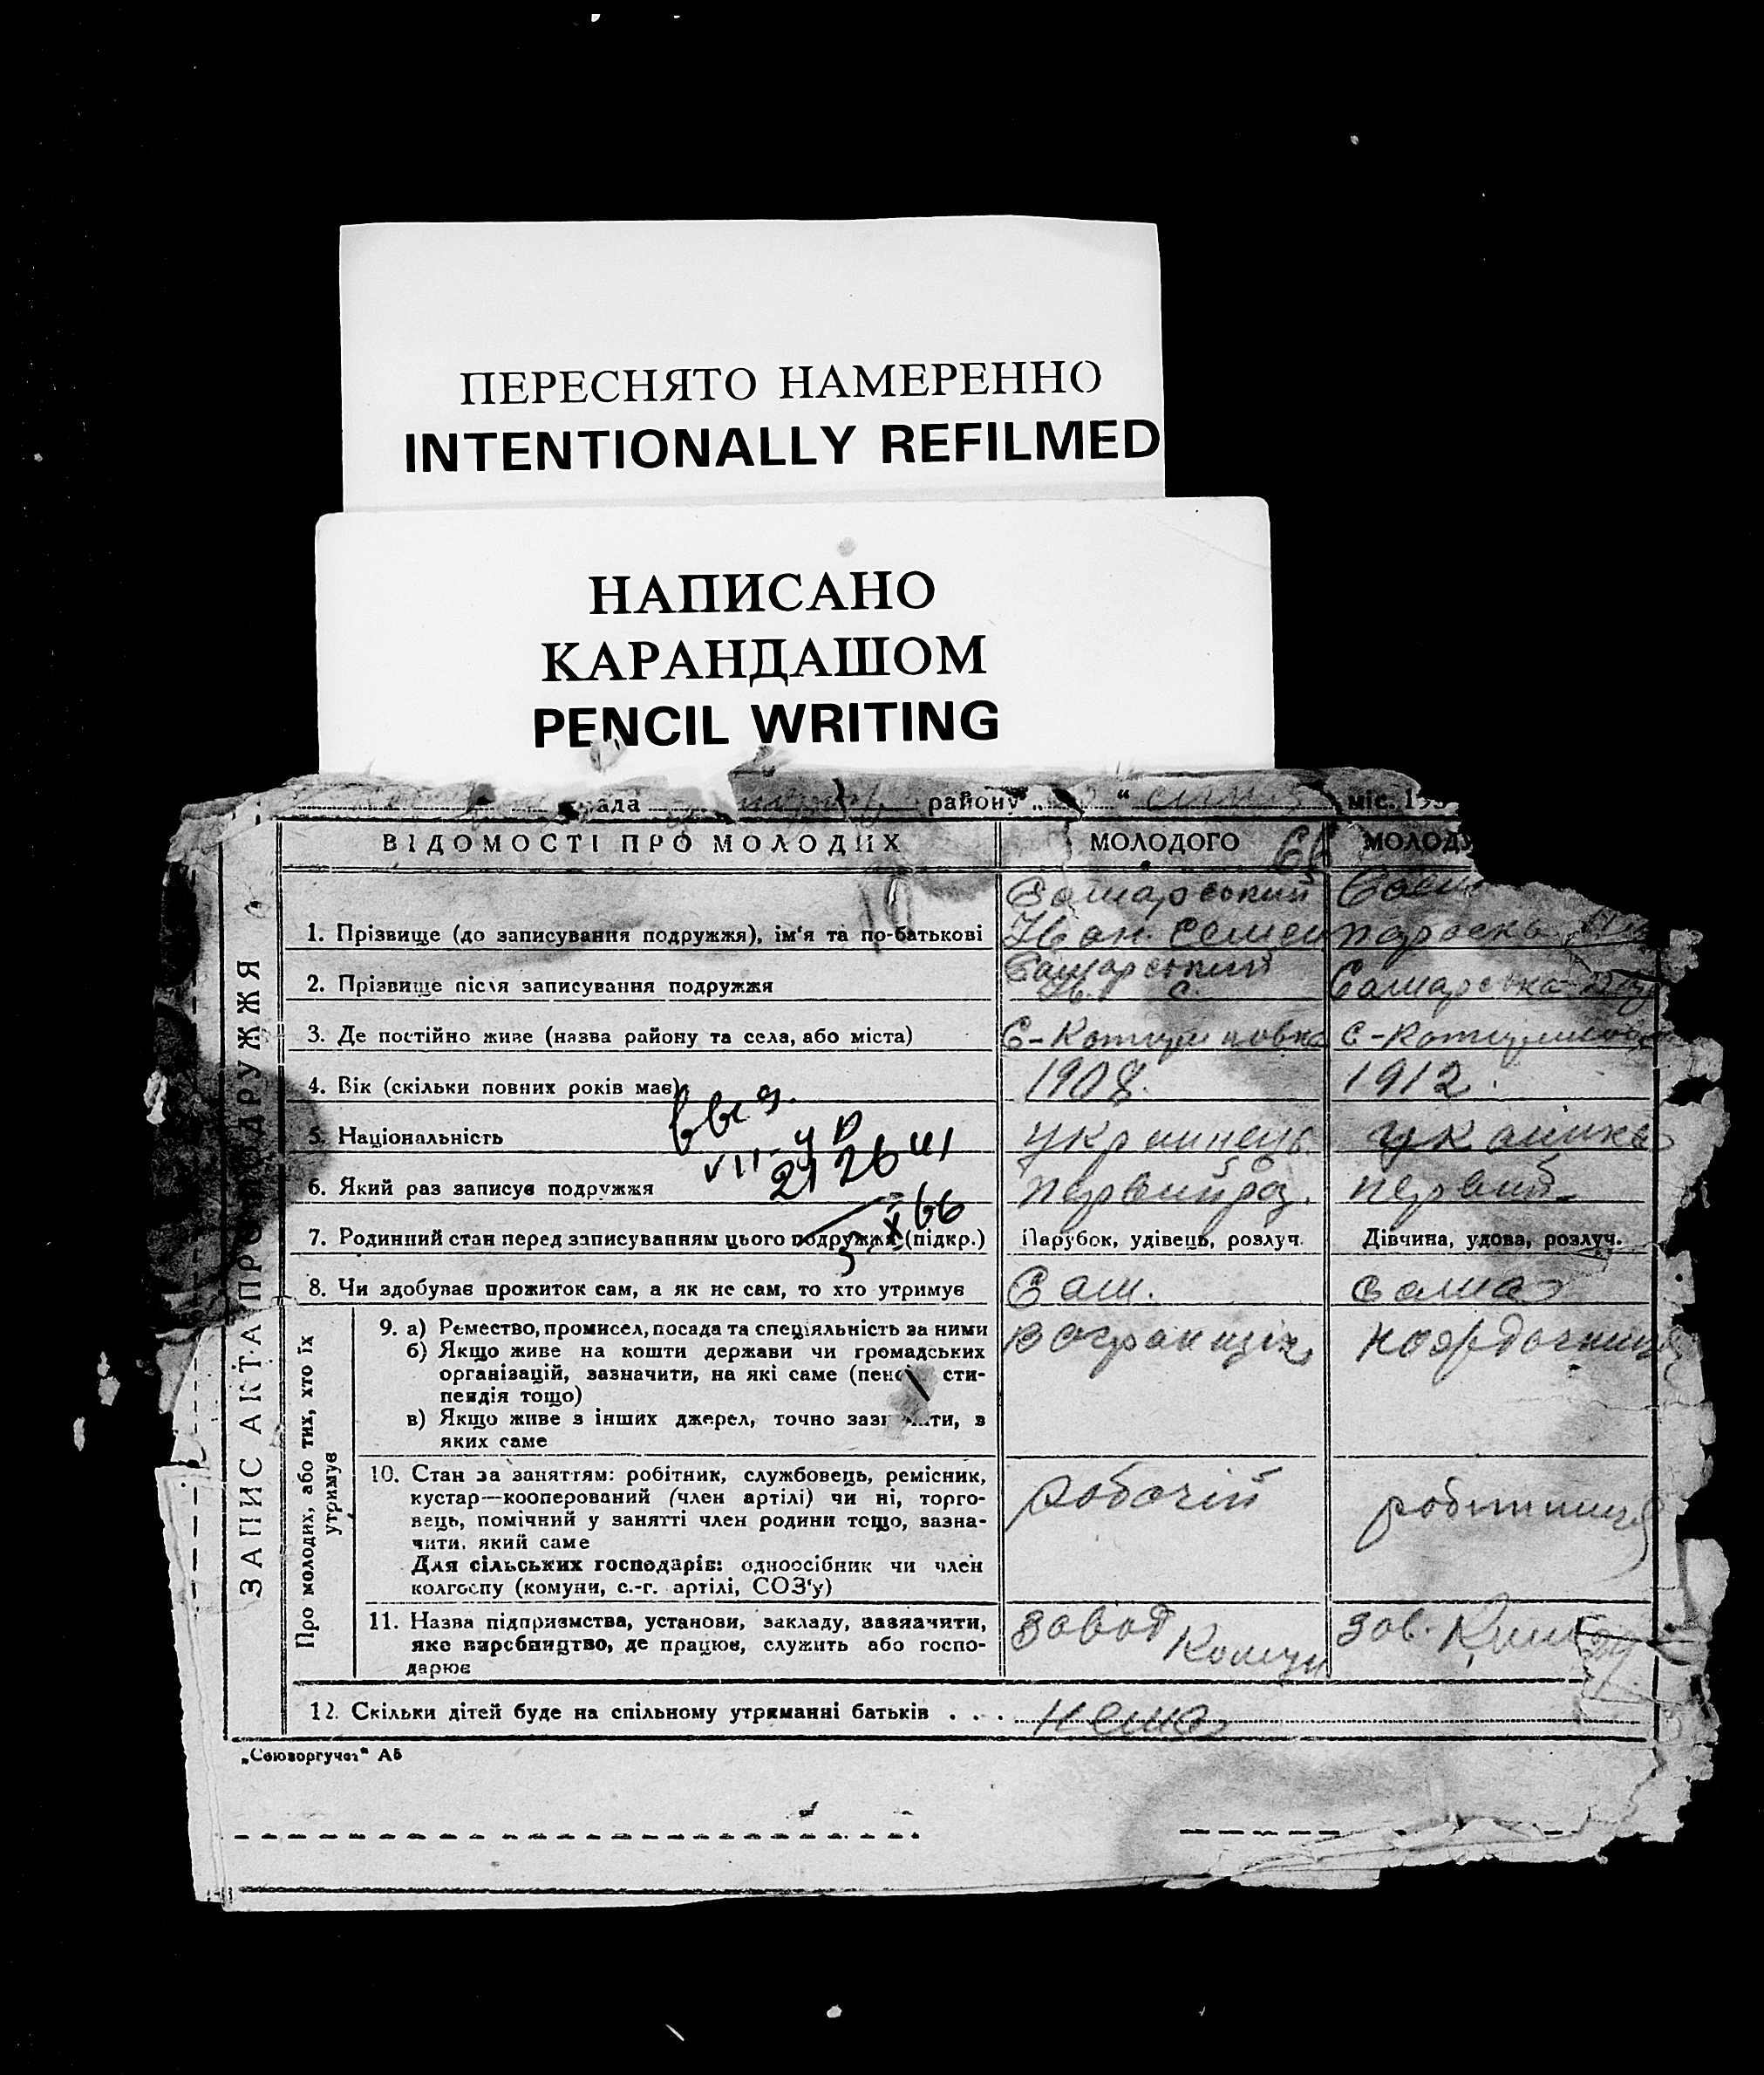 ПЕРЕСНЯТО НАМЕРЕННО
INTENTIONALLY REFILMED
НАПИСАНО
КАРАНДАШОМ
PENCIL WRITING
ада району „ “ міс. 193
ЗАПИС АКТА ПРО ПОДРУЖЖЯ
ВІДОМОСТІ ПРО МОЛОДИХ
МОЛОДОГО
МОЛОДУ
1. Прізвище (до записування подружжя), ім'я та по-батькові
Самарський
Іван Семен
Параска
2. Прізвище після записування подружжя
Самарський
Ів. С.
Самарська
3. Де постійно живе (назва району та села, або міста)
4. Вік (скільки повних років має)
1908.
1912.
5. Національність
українець
6. Який раз записує подружжя
первий раз.
первий
7. Родинний стан перед записуванням цього подружжя (підкр.)
Парубок, удівець, розлуч.
Дівчина, удова, розлуч.
8. Чи здобуває прожиток сам, а як не сам, то хто утримує
Сам.
сама
Про молодих, або тих, хто їх утримує
9. а) Ремество, промисел, посада та спеціяльність за ними
б) Якщо живе на кошти держави чи громадських
організацій, зазначити, на які саме (пенс сти-
пендія тощо)
в) Якщо живе з інших джерел, точно заз ити, з
яких саме
10. Стан за заняттям: робітник, службовець, ремісник,
кустар—кооперований (член артілі) чи ні, торго-
вець, помічний у занятті член родини тощо, зазна-
чити, який саме
Для сільських господарів: одноосібник чи член
колгоспу (комуни, с.-г. артілі, СОЗ'у)
робочій
робітниця
11. Назва підприємства, установи, закладу, зазначити,
яке виробництво, де працює, служить або госпо-
дарює
завод
Комун
зав.
12. Скільки дітей буде на спільному утриманні батьків . . .
нема
„Союзоргучет“ АБ